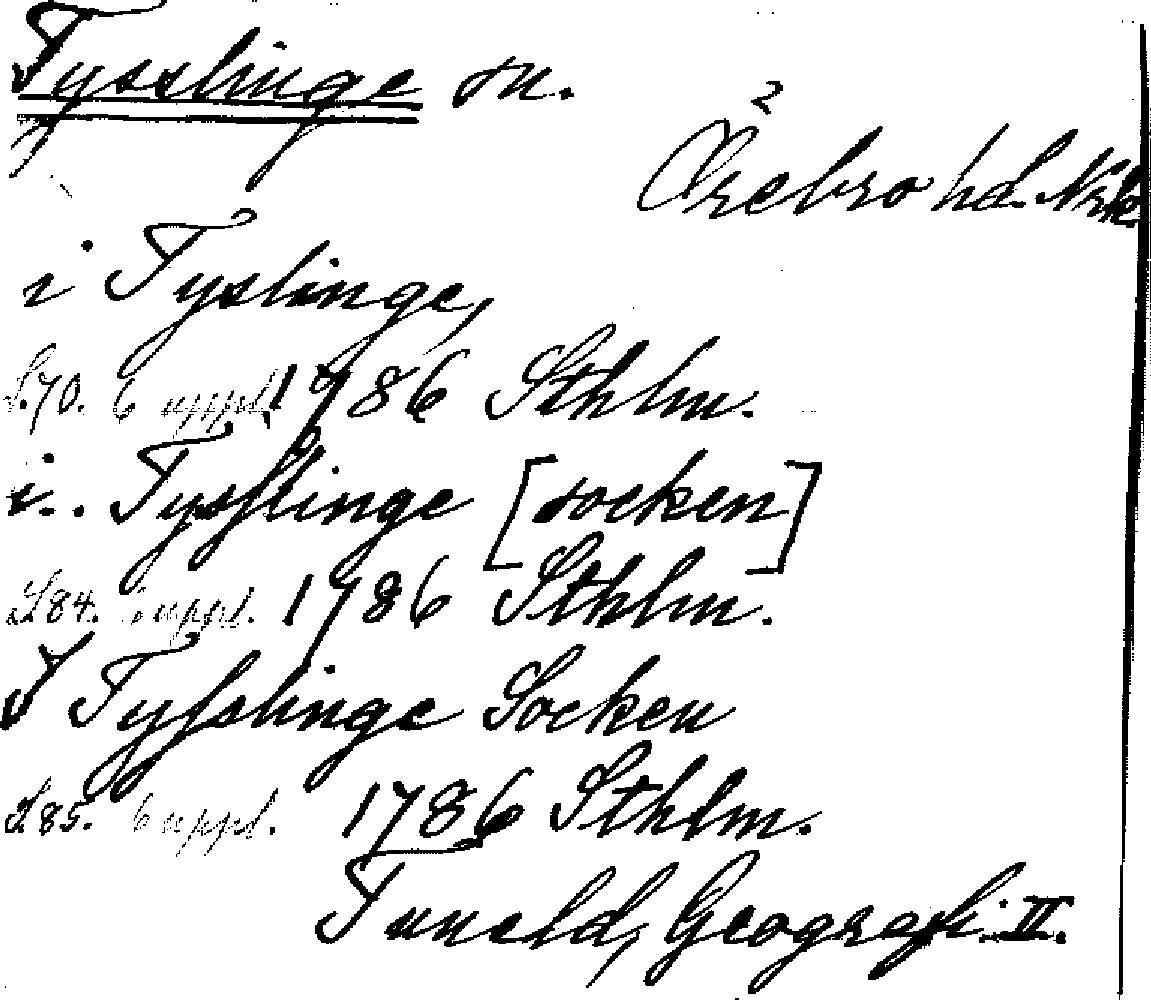 Tysslinge sn.
2
Örebro hd. Nrk
i Tyslinge,
S.70. 6 uppl. 1786 Sthlm.
i.. Tysslinge [socken]
S.84. 6 uppl. 1786 Sthlm.
I Tysslinge Socken
S.85. 6 uppl. 1786 Sthlm.
Tuneld, Geografi. II.